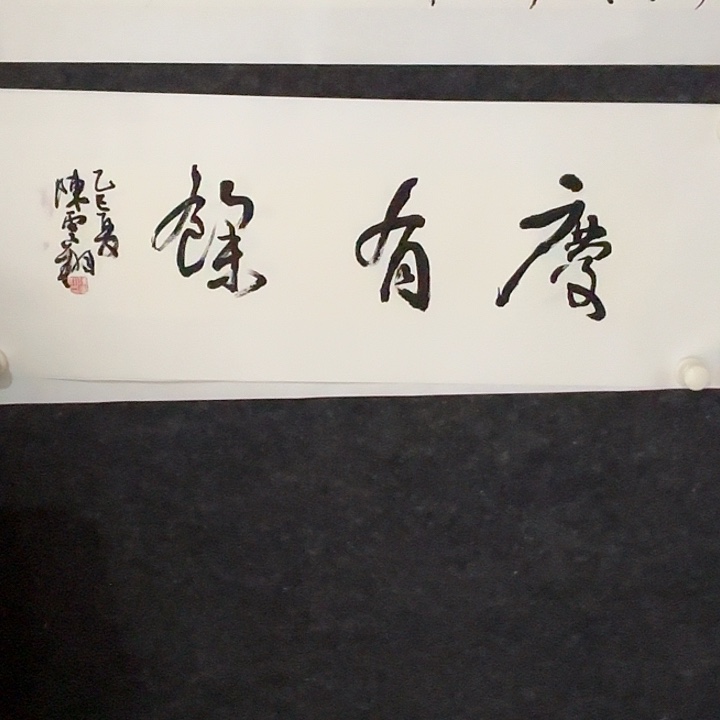 慶有餘
乙巳夏
陳雲翔